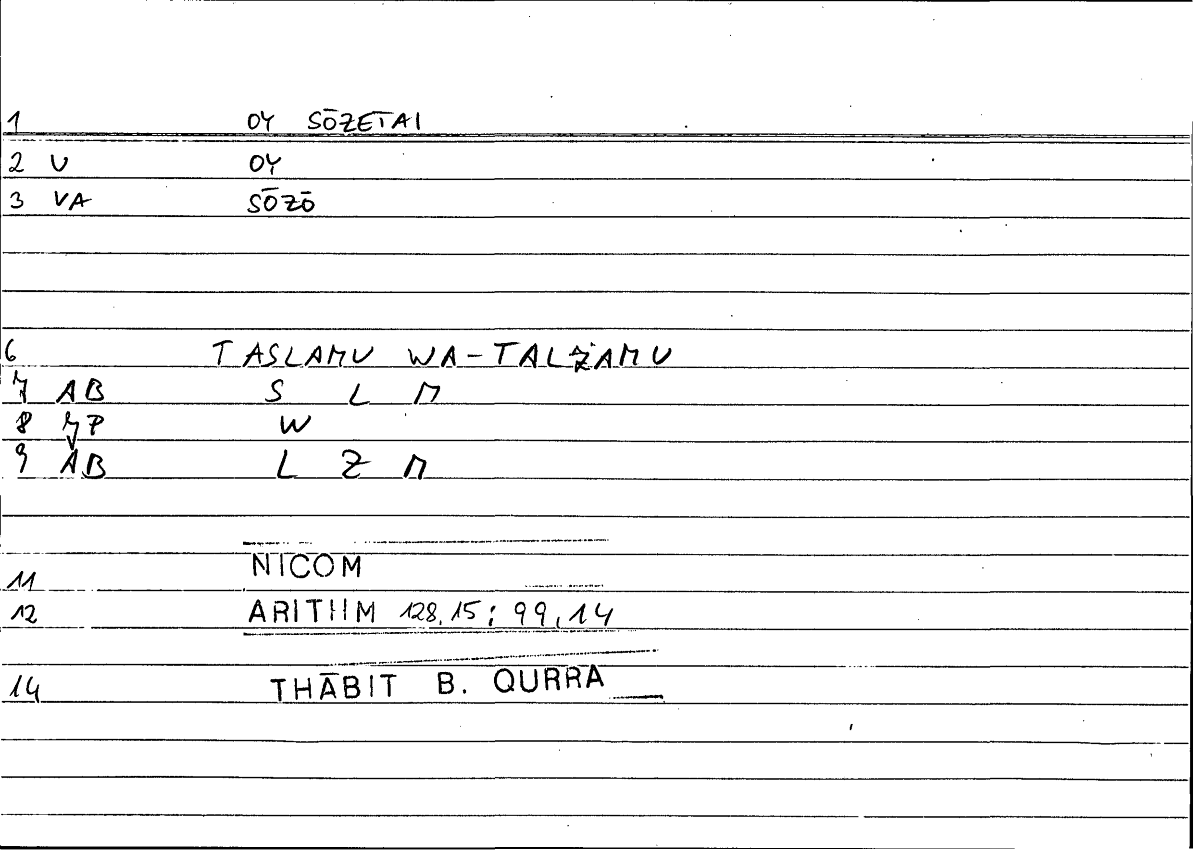 1 OY SŌZETAI
2 U OY
3 VA SŌZŌ
6 TASLAMU WA-TALZAMU
7 AB S L M
8 JP W
9 AB L Z M
11 NICOM
12 ARITHM 128,15; 99,14
14 THĀBIT B. QURRA